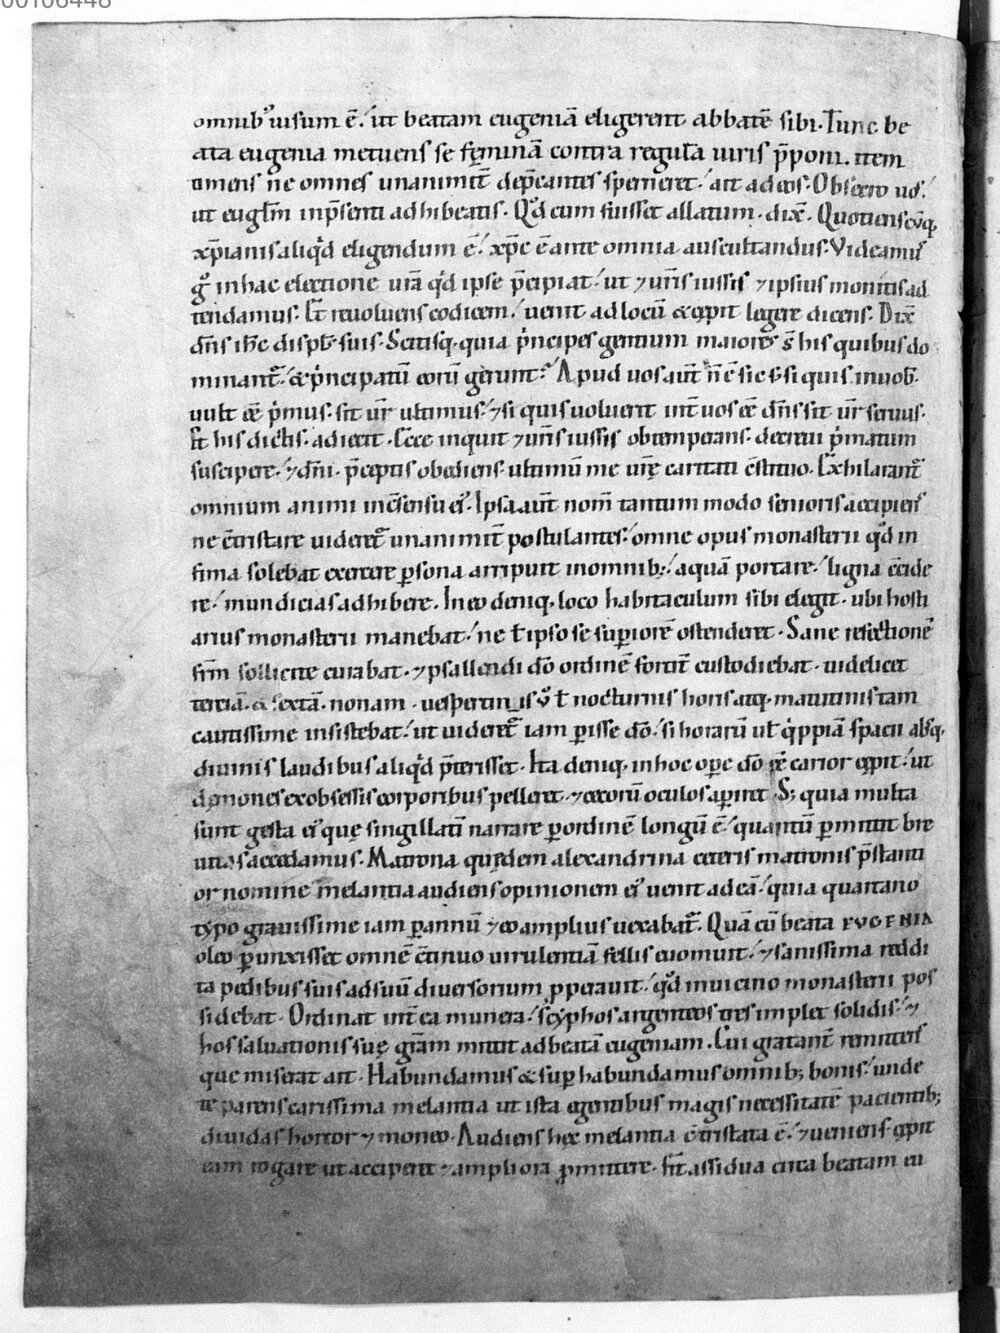 00106448
omnib' uisum ē. ut beatam eugeniā eligerent abbatē sibi. Tunc be
ata eugenia metuens se fęminā contra regulā uiris p̄poni. item
timens ne omnes unanimit̄ dep̄cantes sperneret. ait ad eos. Obsecro uos.
ut eugl̄m in p̄senti adhibeatis. Qđ cum fuisset allatum. dix̄. Quotienscūq,
xp̄ianis aliqđ eligendum ē. xp̄c ē ante omnia auscultandus. Videamus
g° in hac electione urā qđ ipse p̄cipiat. ut ⁊ ur̄is iussis ⁊ ipsius monitis ad
tendamus. Et reuoluens codicem. uenit ad locū & cępit legere dicens. Dix̄
dn̄s ih̄c disp̄lis suis. Scitisq, quia p'ncipes gentium maiores s̄ his quibus do
minant̄. & p'ncipatū eorū gerunt. Apud uos aut̄ n̄ ē sic s; si quis in uob̄.
uult eē p'mus. sit ur̄ ultimus. ⁊ si quis uoluerit int̄ uos eē dn̄s sit ur̄ seruus.
Et his dictis. adiecit. Ecce inquit ⁊ ur̄is iussis obtemperans. decreui p'matum
suscipere. ⁊ dn̄i p̄ceptis obediens. ultimū me ur̄ę caritati c̄stituo. Exhilarant̄
omnium animi in c̄sensu ei'. Ipsa aut̄ nom̄ tantum modo senioris accipiens
ne c̄tristare uideret̄ unanimit̄ postulantes. omne opus monasterii qđ in
fima solebat exercere p̱sona arripuit in omnib;. aquā portare. ligna c̄cide
re. mundicias adhibere. In eo deniq, loco habitaculum sibi elegit. ubi hosti
arius monasterii manebat. ne ł ipso se sup̱iorē ostenderet. Sane refectionē
fr̄m sollicite curabat. ⁊ psallendi dō ordinē fortit̄ custodiebat. uidelicet
terciā. & sextā. nonam. uespertinis ů ł nocturnis horis atq, matutinis tam
cautissime insistebat. ut uideret̄ iam p̱isse dō. si horarū ut̄ q'ppiā spacii absq,
diuinis laudibus aliqđ p̄terisset. Ita deniq, in hoc ope dō c̄ę carior cępit. ut
dęmones ex obsessis corporibus pelleret. ⁊ cęcorū oculos ap̱iret. S; quia multa
sunt gesta ei' que singillatī narrare p̱ ordinē longū ē. quantū p̱mittit bre
uitas accedamus. Matrona quędem alexandrina ceteris matronis p̄stanti
or nomine melantia audiens opinionem ei' uenit ad eā. quia quartano
typo grauissime iam p̱ annū ⁊ eo amplius uexabat̄. Quā cū beata EVGENIA
oleo p̱unxisset omnē c̄tinuo uirulentiā fellis euomuit. ⁊ sanissima reddi
ta pedibus suis ad suū diuersorium pperauit. qđ in uicino monasterii pos
sidebat. Ordinat int̄ ea munera. scyphos argenteos tres implet solidis. ⁊
hos saluationis suę gr̄am mittit ad beatā eugeniam. Cui gratant̄ remittens
que miserat ait. Habundamus & sup̱habundamus omnib; bonis. unde
te parens carissima melantia ut ista egentibus magis necessitatē pacientib;
diuidas hortor ⁊ moneo. Audiens hęc melantia c̄tristata ē. ⁊ ueniens cępit
eam rogare ut acciperet ⁊ ampliora pmittere. fit assidua circa beatam eu